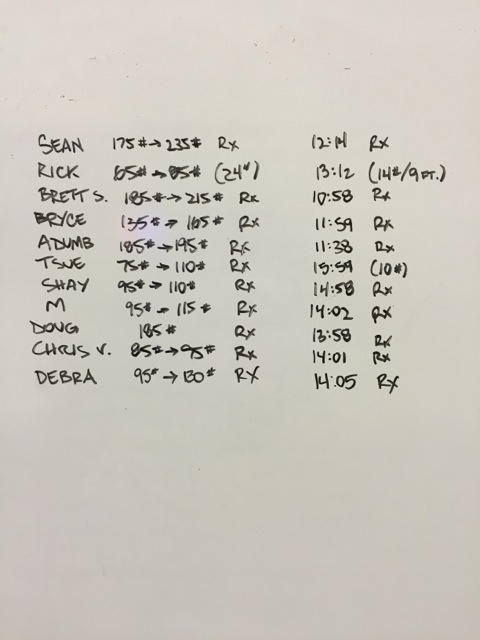 SEAN 175#→235# Rx 12:14 Rx
RICK 65#→85# (24") 13:12 (14#/9FT.)
BRETT S. 185#→215# Rx 10:58 Rx
BRYCE 135#→165# Rx 11:59 Rx
ADUMB 185#→195# Rx 11:38 Rx
TSUE 75#→110# Rx 15:59 (10#)
SHAY 95#→110# Rx 14:58 Rx
M 95#→115# Rx 14:02 Rx
DOUG 185# Rx 13:58 Rx
CHRIS V. 85#→95# Rx 14:01 Rx
DEBRA 95#→130# RX 14:05 RX